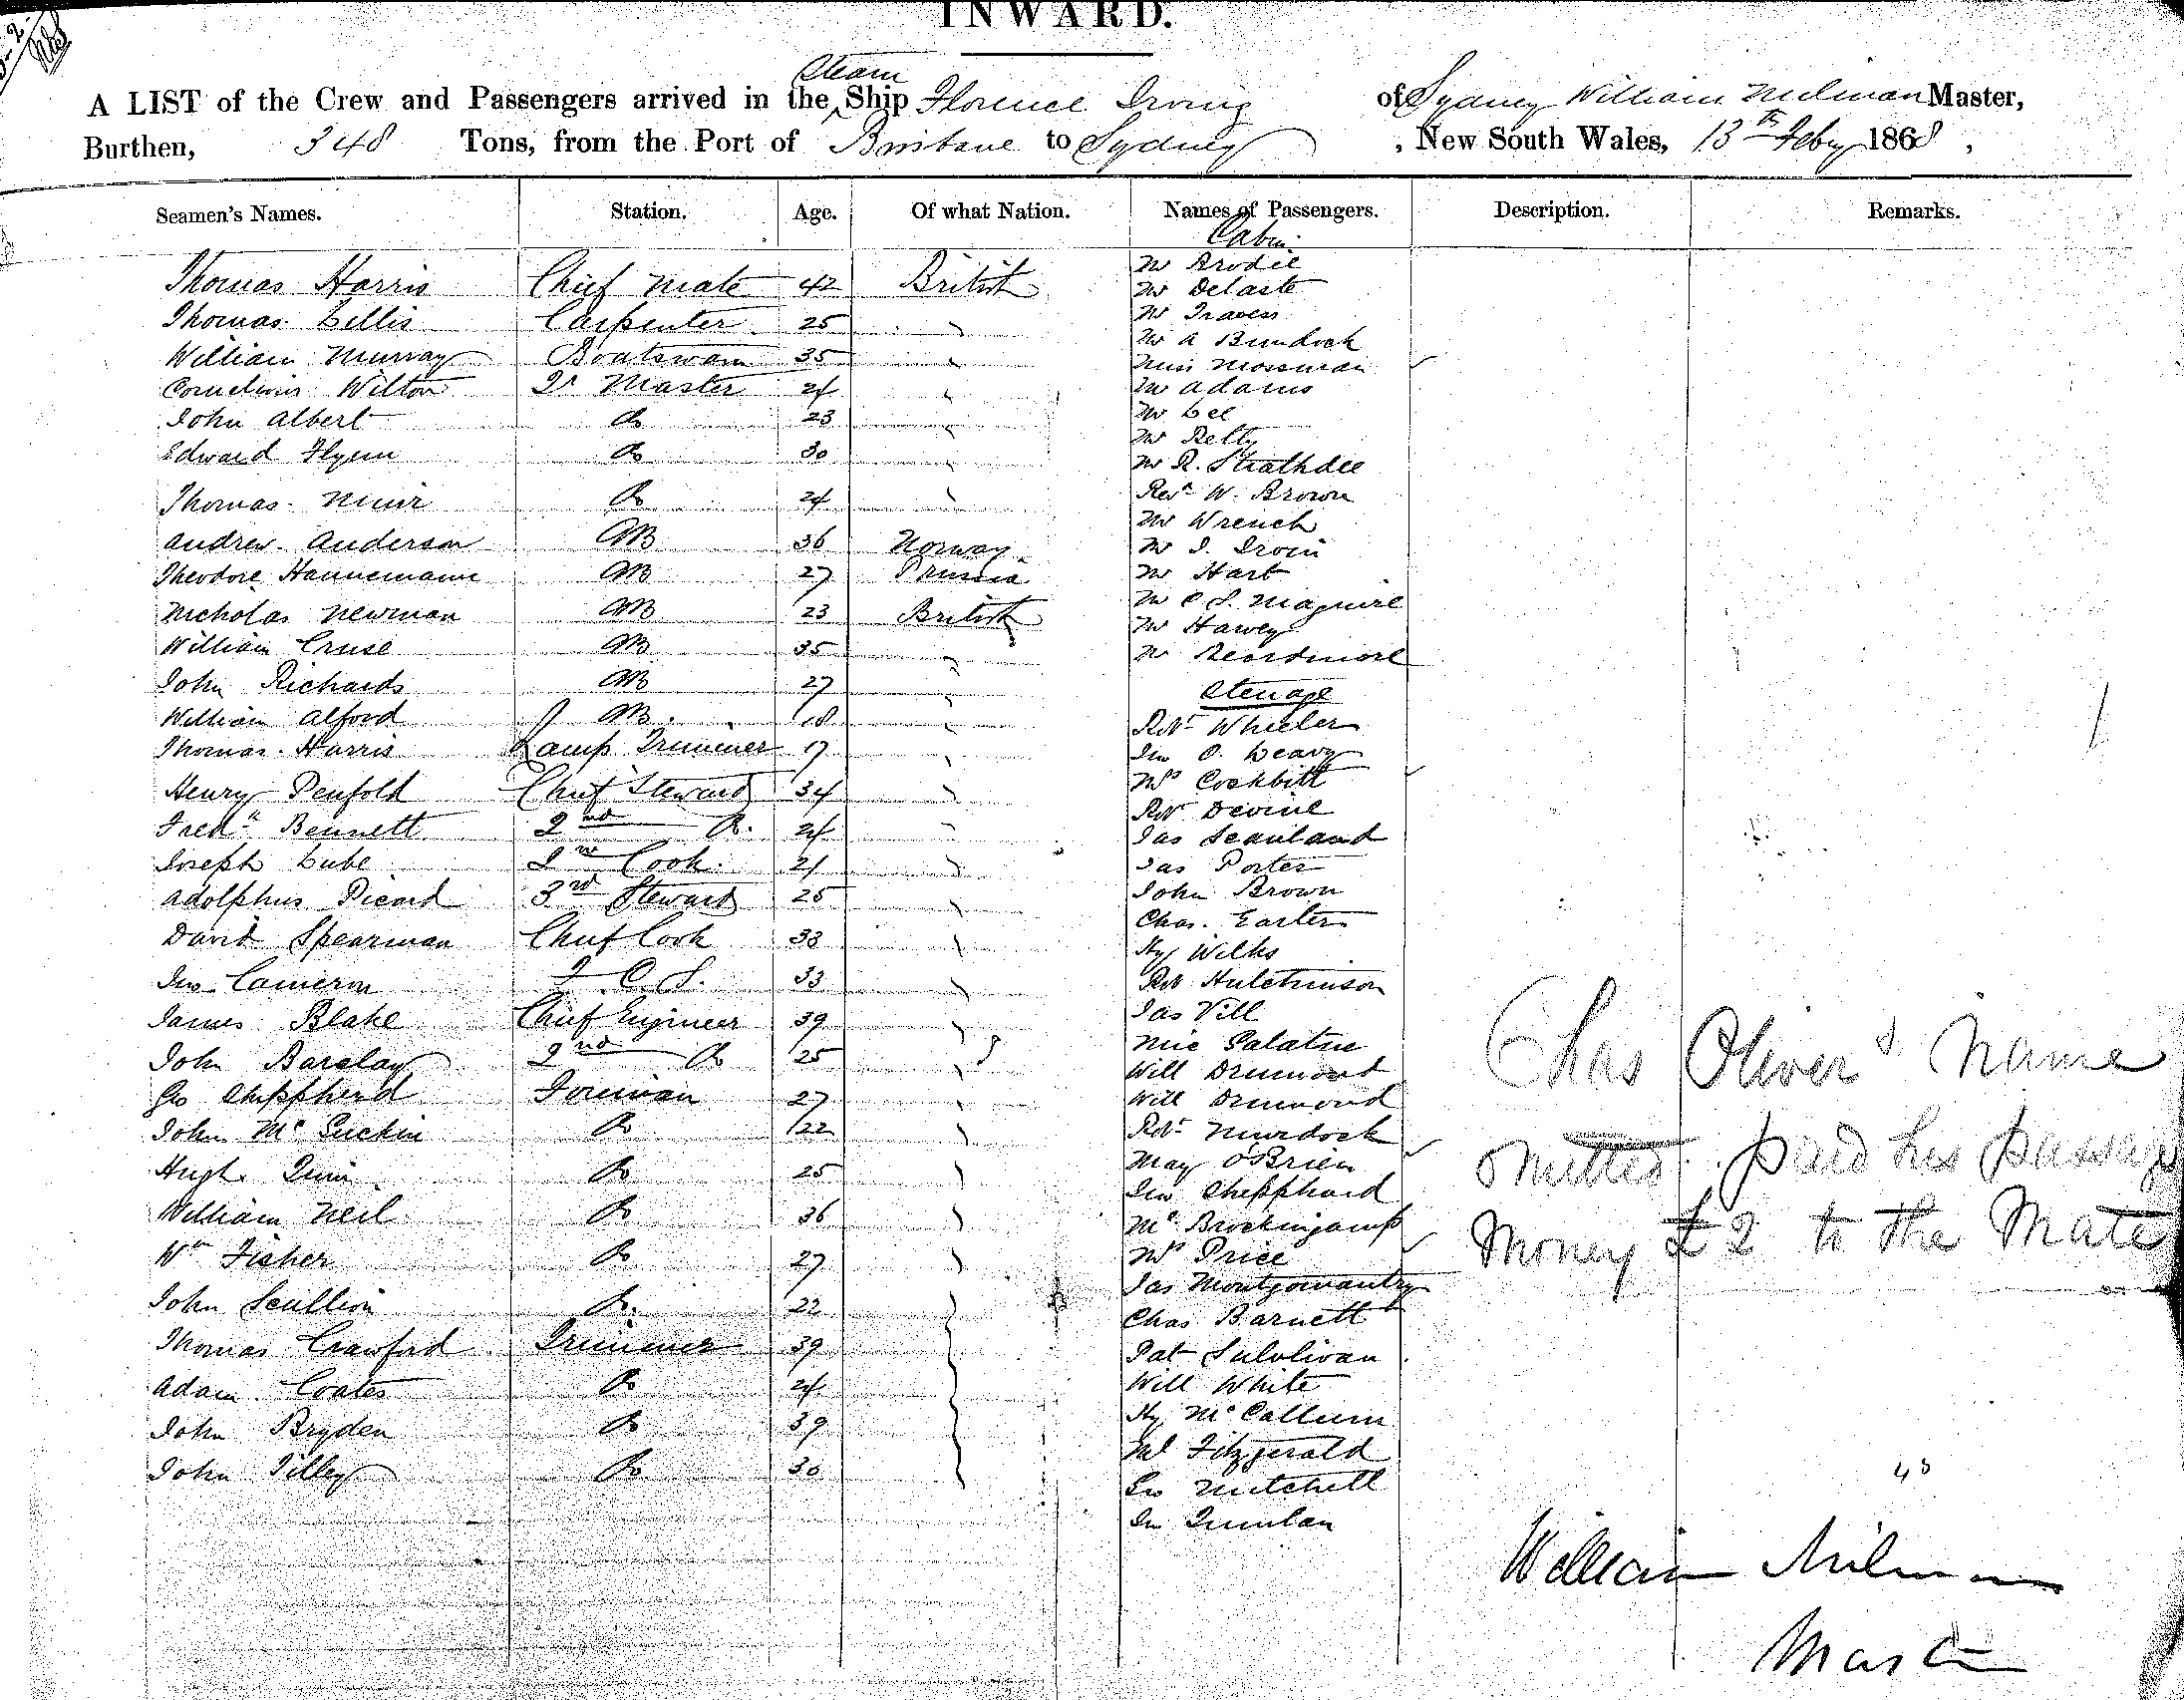 INWARD.
A LIST of the Crew and Passengers arrived in the Steam Ship Florence Irving of Sydney William Milman Master,
Burthen, 348 Tons, from the Port of Brisbane to Sydney , New South Wales, 13th Feby 1868 ,
Seamen's Names. Station. Age. Of what Nation. Names of Passengers. Description. Remarks.
Cabin
Mr Brodie
Thomas Harris Chief Mate 42 British Mr Delaste
Thomas Lillis Carpenter 25 Mr Travers
Mr A Bundock
William Murray Boatswain 35 Miss Mossman
Cornelius Wilton Qr Master 24 Mr Adams
John Albert Do 23 Mr Lee
Mr Relty
Edward Flynn Do 30 Mr R. Strathdee
Thomas Muir Do 24 Revd W. Brown
Mr Wrench
Andrew Anderson AB 36 Norway Mr J. Irvin
Theodore Hannemann AB 27 Prussia Mr Hart
Nicholas Newman AB 23 British Mr C S. Maguire
Mr Harvey
William Cruse AB 35 Mr Beardmore
John Richards AB 27 Steerage
William Alford AB 18 Robt Wheeler
Thomas Harris Lamp Trimmer 17 Jno O. Leary
Henry Penfold Chief Steward 34 Mrs Cockbitt
Robt Devine
Fredk Bennett 2nd Do 24 Jas Scanland
Joseph Lube 2nd Cook 21 Jas Porter
Adolphus Picard 3rd Steward 25 John Brown
Chas. Earter
David Spearman Chief Cook 33 Hy Wilks
Jno Cameron F. C. S. 33 Robt Hutchinson
James Blake Chief Engineer 39 Jas Vill
John Barclay 2nd Do 25 Mic Palatue
Will Drumont
Geo Sheppherd Foreman 27 Will Drumond
John Mc Guckin Do 22 Robt Murdock
Hugh Quin Do 25 May O'Brien
Jno Sheppherd
William Neil Do 36 Mc Brockingamp
Wm Fisher Do 27 Mrs Price
Jas Montgomantry
John Scullion Do 22 Chas Barnett
Thomas Crawford Trimmer 39 Pat Sulolivan
Adam Coates Do 24 Will White
John Bryden Do 39 Hy Mc Callum
Ml Fitzgerald
John Tilley Do 30 Geo Mitchell
Jn Quinlan
Chas Oliver's Name
omitted paid his passage
Money £2 to the Mate
43
William Milman
Master